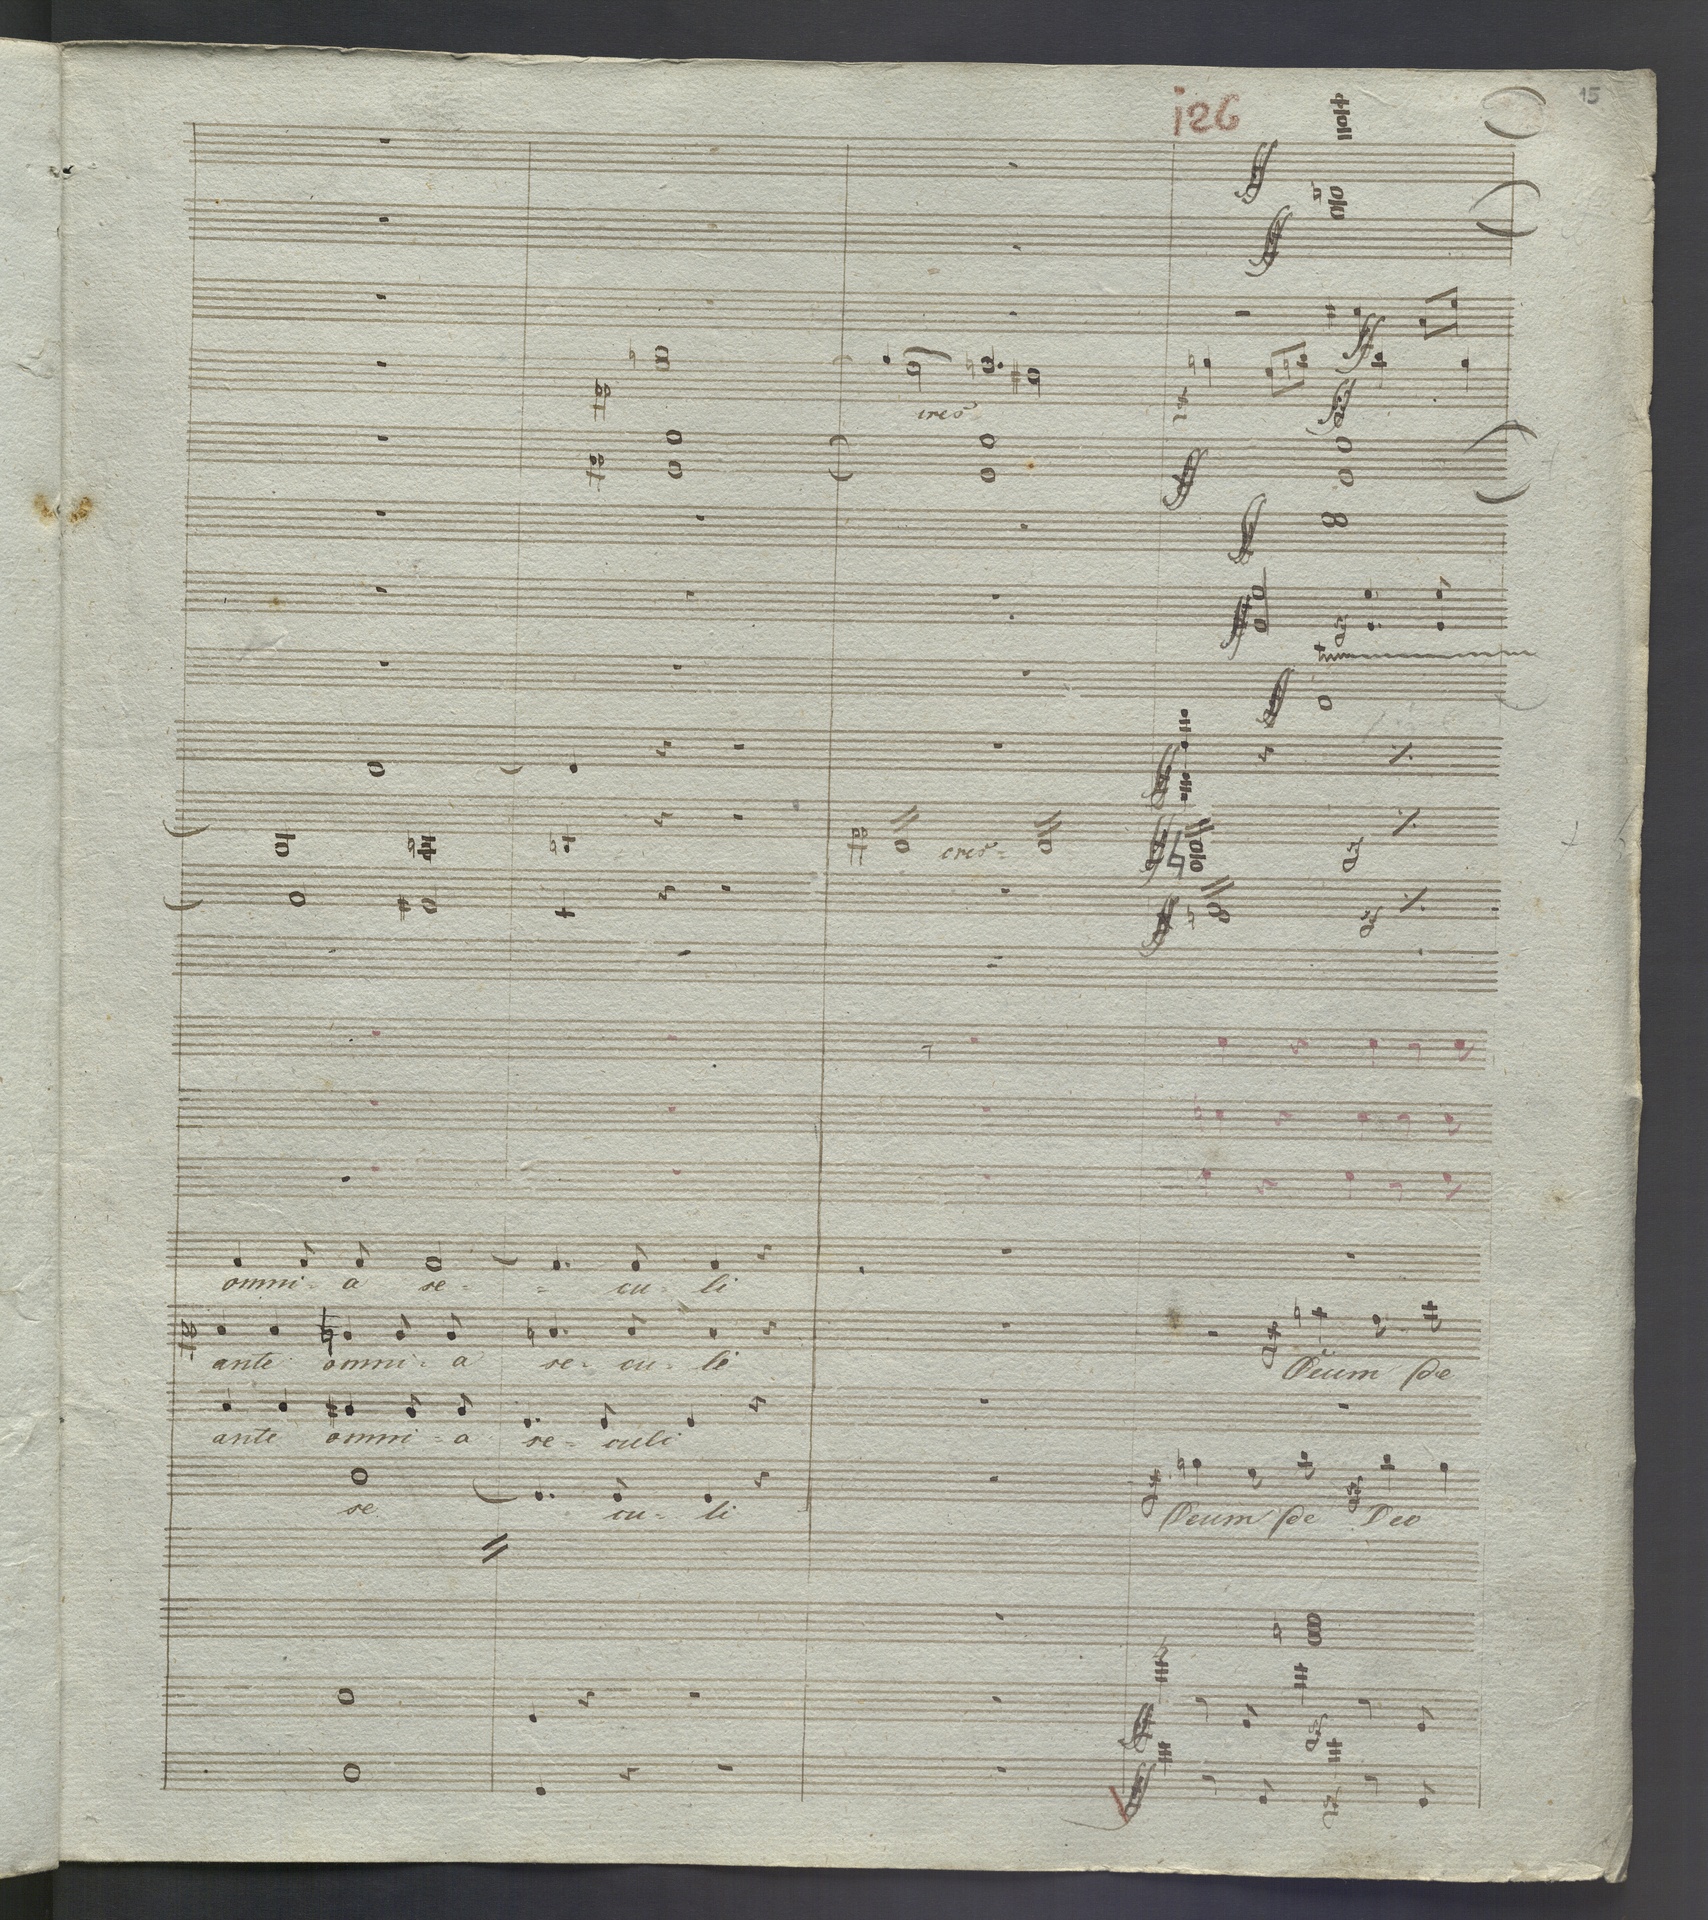 15
126
cres
cres
omni - a se - - cu - li
ante omni - a se - cu - li
Deum de
ante omni - a se - culi
se cu - li
Deum de Deo